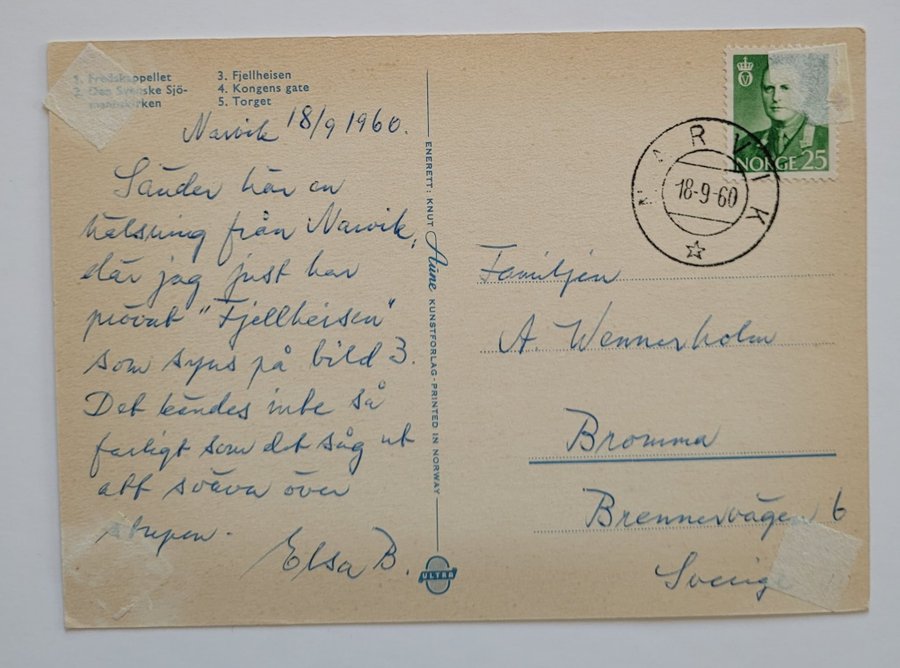 1. Fredskappellet
2. Den Svenske Sjö-
mannskirken
3. Fjellheisen
4. Kongens gate
5. Torget
Narvik 18/9 1960.
Sänder här en
hälsning från Narvik,
där jag just har
prövat "Fjellheisen"
som syns på bild 3.
Det kändes inte så
farligt som det såg ut
att sväva över
stupen.
Elsa B.
ENERETT: KNUT Aune KUNSTFORLAG - PRINTED IN NORWAY
ULTRA
NORGE 25
NARVIK
18-9-60
Familjen
A. Wennerholm
Bromma
Brennervägen 6
Sverige